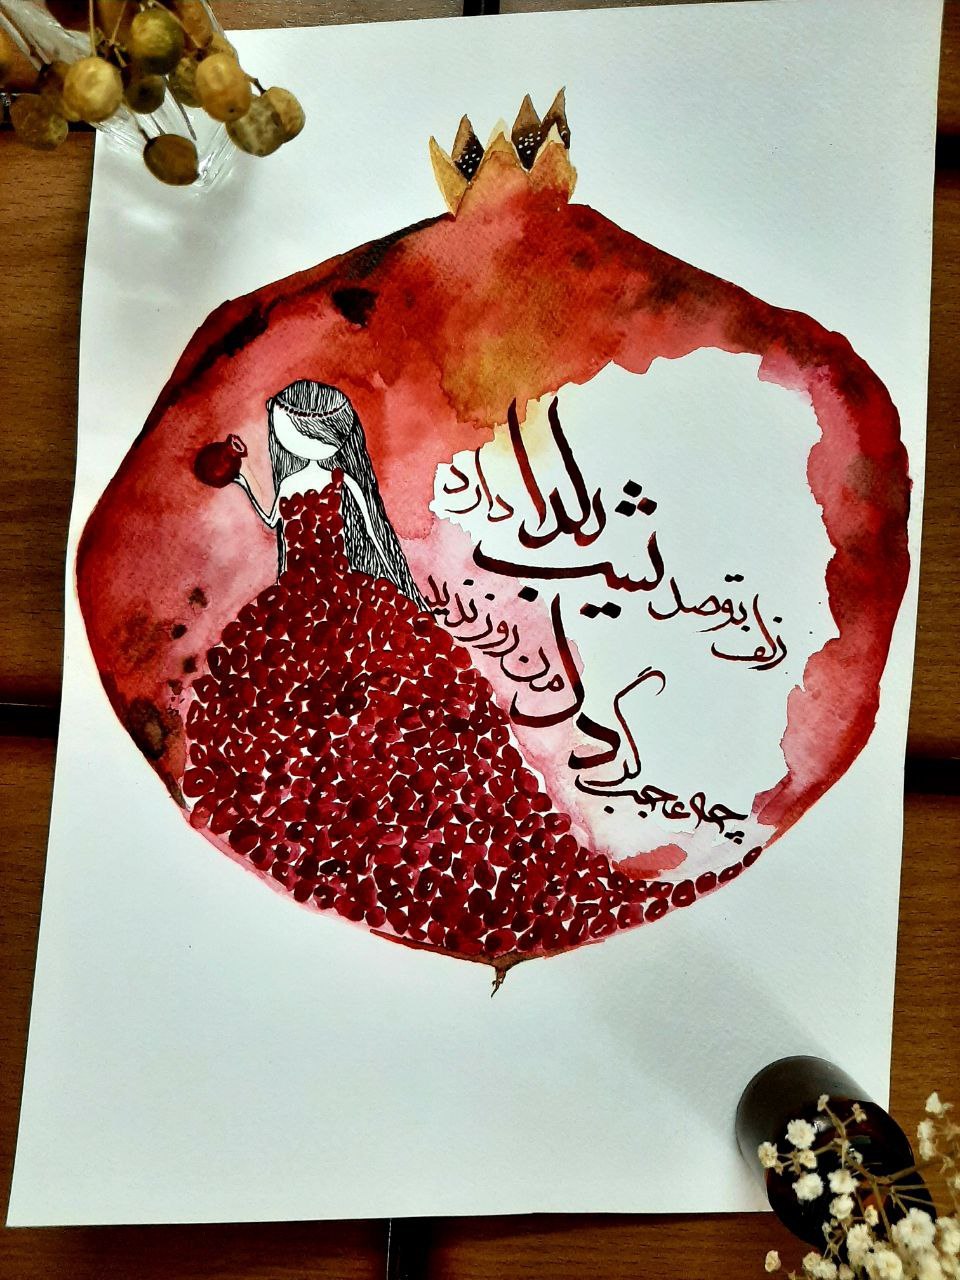 زلف تو صد شب یلدا دارد
چه عجب گر دل من روز ندید